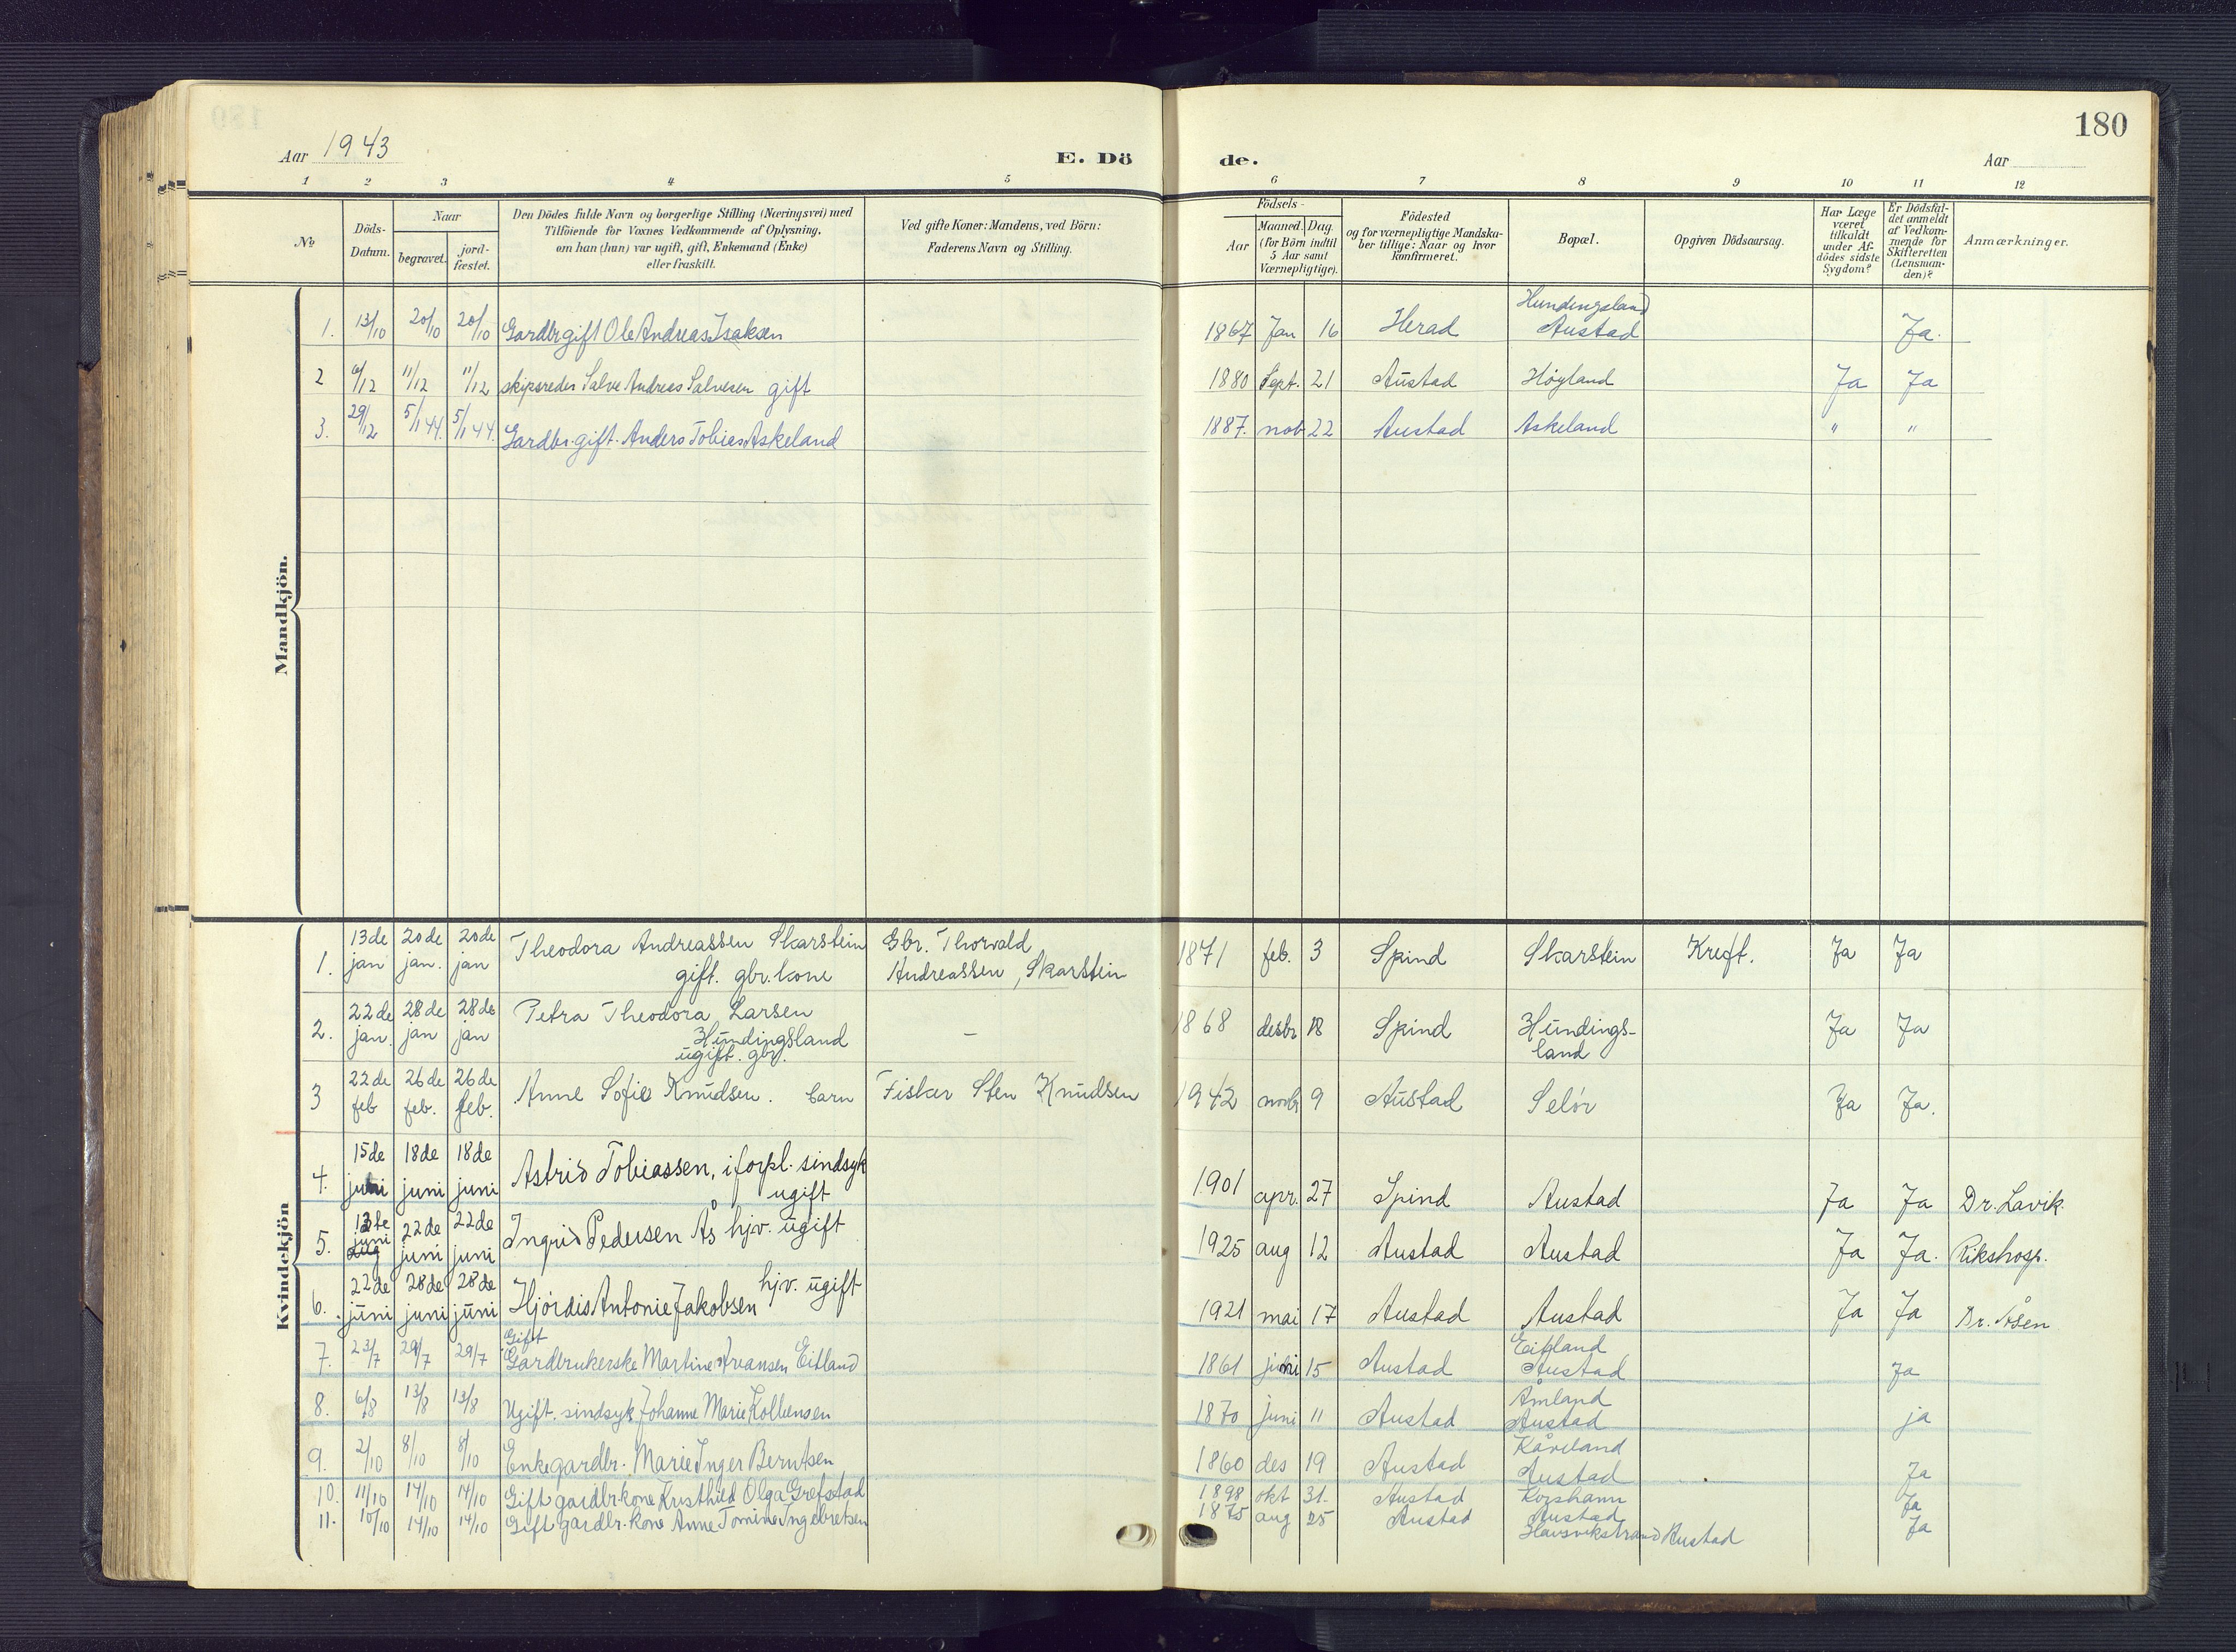 180
Aar 1943
E. Dö
de.
Aar
1 2 3 4 5 6 7 8 9 10 11 12
No
Döds-Datum.
Naar
begravet.
jord-fæstet.
Den Dödes fulde Navn og borgerlige Stilling (Næringsvei) med
Tilföiende for Voxnes Vedkommende af Oplysning,
om han (hun) var ugift, gift, Enkemand (Enke)
eller fraskilt.
Ved gifte Koner: Mandens, ved Börn:
Faderens Navn og Stilling.
Födsels-
Aar
Maaned. Dag.
(for Börn indtil
5 Aar samt
Værnepligtige).
Födested
og for værnepligtige Mandska-
ber tillige: Naar og hvor
konfirmeret.
Bopæl.
Opgiven Dödsaarsag.
Har Læge
været
tilkaldt
under Af-
dödes sidste
Sygdom?
Er Dödsfal-
det anmeldt
af Vedkom-
mende for
Skifteretten
(Lensman-
den)?
Anmærkninger.
Mandkjön.
1. 13/10 20/10 20/10 Gardbr gift Ole Andreas Isaksen 1867 Jan 16 Herad Hundingsland Austad Ja.
2 6/12 11/12 11/12 skipsreder Salve Andreas Salvesen gift 1880 Sept. 21 Austad Höyland Ja Ja
3. 29/12 5/1 44. 5/1 44. Gardbr. gift. Anders Tobias Askeland 1887. nob 22 Austad Askeland " "
Kvindekjön
1. 13de jan 20de jan. 20de jan Theodora Andreassen Skarstein Gbr. Thorvald
gift. gbr. kone Andreassen, Skarstein 1871 feb. 3 Spind Skarstein Kreft. Ja Ja
2. 22de jan. 28de jan 28de jan Petra Theodora Larsen
Hundingsland
ugift. gbr. – 1868 desbr 18 Spind Hundings-
land Ja Ja
3 22de feb 26de feb. 26de feb. Anne Sofie Knudsen. barn Fisker Sten Knudsen 1942 novbr 9 Austad Selör Ja Ja.
4. 15de juni 18de juni 18de juni Astrid Tobiassen, i forpl. sindsyk
ugift 1901 apr. 27 Spind Austad Ja Ja Dr. Lavik.
5. 13de juni 22de juni 22de juni Ingrid Pedersen Ås hjv. ugift 1925 aug 12 Austad Austad Ja Ja. Rikshosp.
6. 22de juni 28de juni 28de juni Hjördis Antonie Jakobsen hjv. ugift 1921 mai 17 Austad Austad Ja Ja Dr. Åsen
7. 23/7 29/7 29/7 Gift
Gardbrukerske Martine Avansen Eitland 1861 juni 15 Austad Eitland
Austad Ja
8. 6/8 13/8 13/8 Ugift. sindsyk Johanne Marie Kolbensen 1870 juni 11 Austad Åmland
Austad ja
9. 2/10 8/10 8/10 Enke gardbr. Marie Inger Berntsen 1860 des 19 Austad Kåreland
Austad Ja
10. 11/10 14/10 14/10 Gift gardbr. kone Kristhild Olga Grefstad 1898 okt 31. Austad Korshamn
Austad Ja
11. 10/10 14/10 14/10 Gift gardbr. kone Anne Tomine Ingebretsen 1875 aug 25 Austad Hausvikstrand Austad Ja